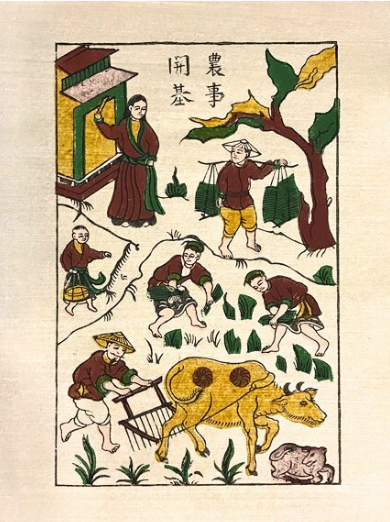 農事
開基